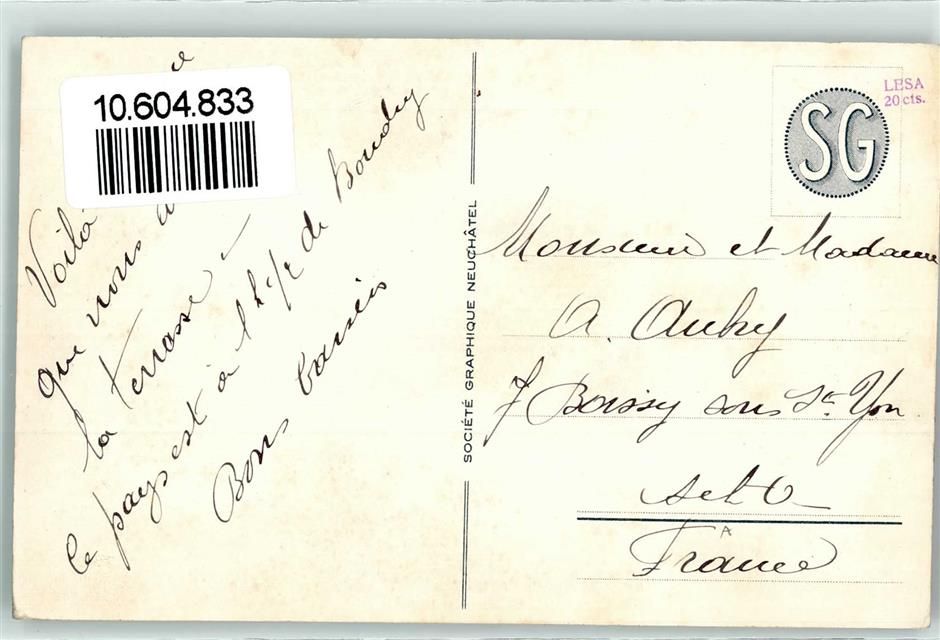 10.604.833
Voilà
que nous
la terrasse -
le pays est à 1 h 1/2 de Boudry
Bons baisers
SOCIÉTÉ GRAPHIQUE NEUCHÂTEL
SG
LESA
20 cts.
Monsieur et Madame
A. Aubry
7 Boissy sous St Yon
S et O
France